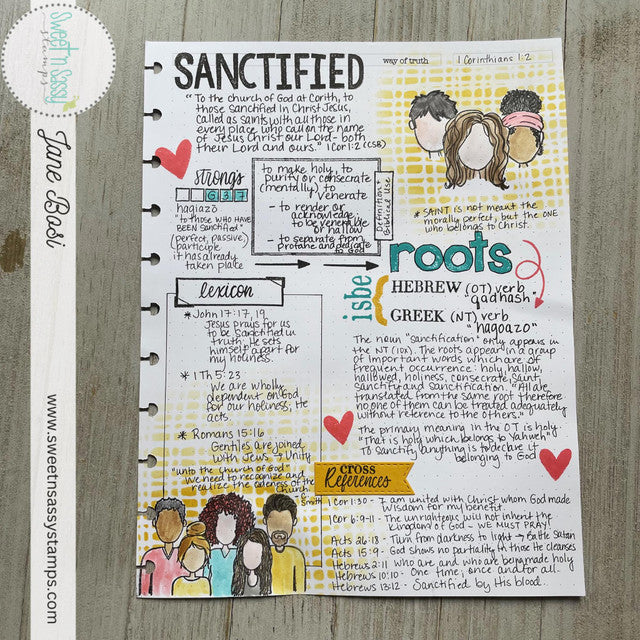 Sweet n Sassy
stamps
Jane Basi
www.sweetnsassystamps.com
SANCTIFIED
way of truth
1 Corinthians 1:2
"To the church of God at Corith, to
those sanctified in Christ Jesus,
called as saints with all those in
every place who call on the name
of Jesus Christ our Lord - both
their Lord and ours." 1 Cor 1:2 (CSB)
strongs
G 3 7
hagiazo
"to those who HAVE
BEEN sanctified"
(perfect, passive)
participle
it has already
taken place
to make holy, to
purify or consecrate
(mentally) to
venerate
- to render or
acknowledge;
to be venerable
or hallow
- to separate from
profane and dedicate
to God
Definition +
Biblical Use
* SAINT is not meant the
morally perfect, but the ONE
who belongs to Christ.
roots
isbe
HEBREW (OT) verb
"qadhash"
GREEK (NT) verb
"hagoazo"
The noun "sanctification" only appears in
the NT (10x). The roots appear in a group
of important words which are of
frequent occurrence: holy, hallow,
hallowed, holiness, consecrate, saint,
sanctify and sanctification. "All are
translated from the same root therefore
no one of them can be treated adequately
without reference to the others."
The primary meaning in the OT is holy.
"That is holy which belongs to Yahweh"
To Sanctify anything is to declare it
belonging to God
lexicon
* John 17:17, 19
Jesus prays for us
to be sanctified in
truth. He sets
himself apart for
my holiness.
* 1 Th 5:23
We are wholly
dependent on God
for our holiness; He
acts.
* Romans 15:16
Gentiles are joined
with Jews → Unity
"unto the church of God"
we need to recognize and
realize the oneness of the
Church
Smith
CROSS
References
1 Cor 1:30 - I am united with Christ whom God made
Wisdom for my benefit.
1 Cor 6:9-11 - The unrighteous will not inherit the
Kingdom of God - WE MUST PRAY!
Acts 26:18 - Turn from darkness to light → Satan
Acts 15:9 - God shows no partiality in those He cleanses
Hebrews 2:11 who are and who are being made holy
Hebrews 10:10 - One time, once and for all.
Hebrews 13:12 - Sanctified by His blood.